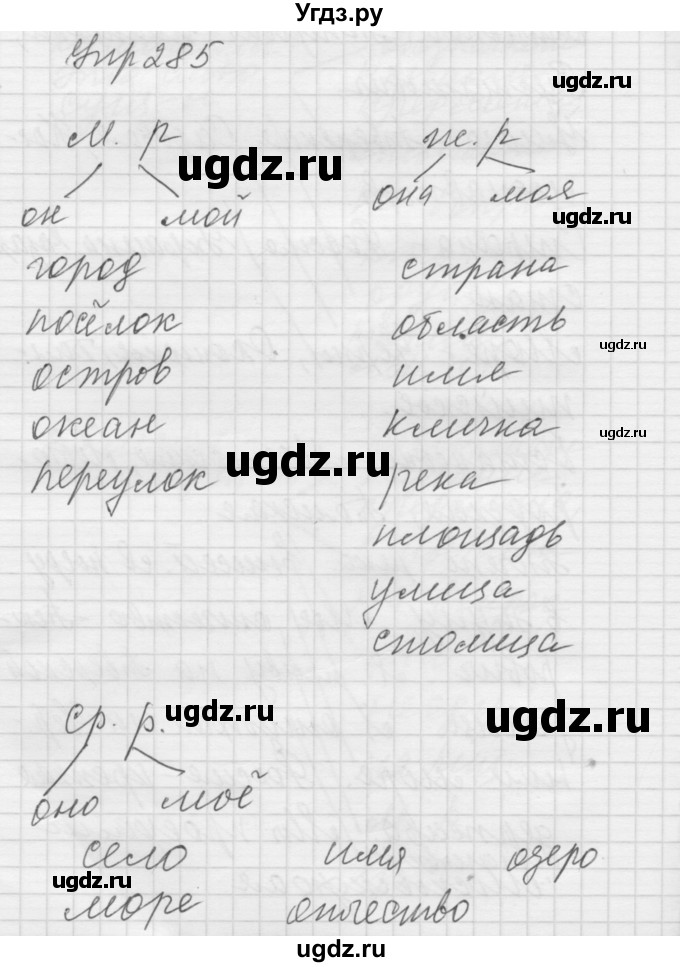 Угдз.ру
Упр 285
м. р ж. р
он мой она моя
город страна
посёлок область
остров имя
океан кличка
переулок река
площадь
улица
столица
ср. р.
оно моё
село имя озеро
море отчество
ugdz.ru
ugdz.ru
ugdz.ru
ugdz.ru
ugdz.ru
ugdz.ru
ugdz.ru
ugdz.ru
ugdz.ru
ugdz.ru
ugdz.ru